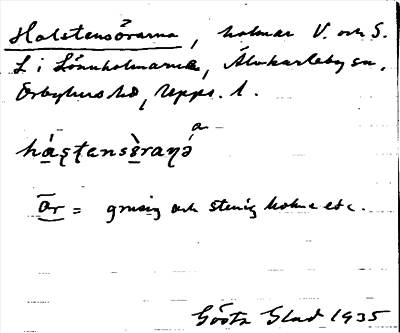 Halstensörarna, holmar V. och S.
L i Lönnholmarna, Älvkarleby sn,
Örbyhus hd, Upps. l.
a
hàʂʈensö̀raɳə
ör = grusig och stenig holme etc.
Gösta Glad 1935